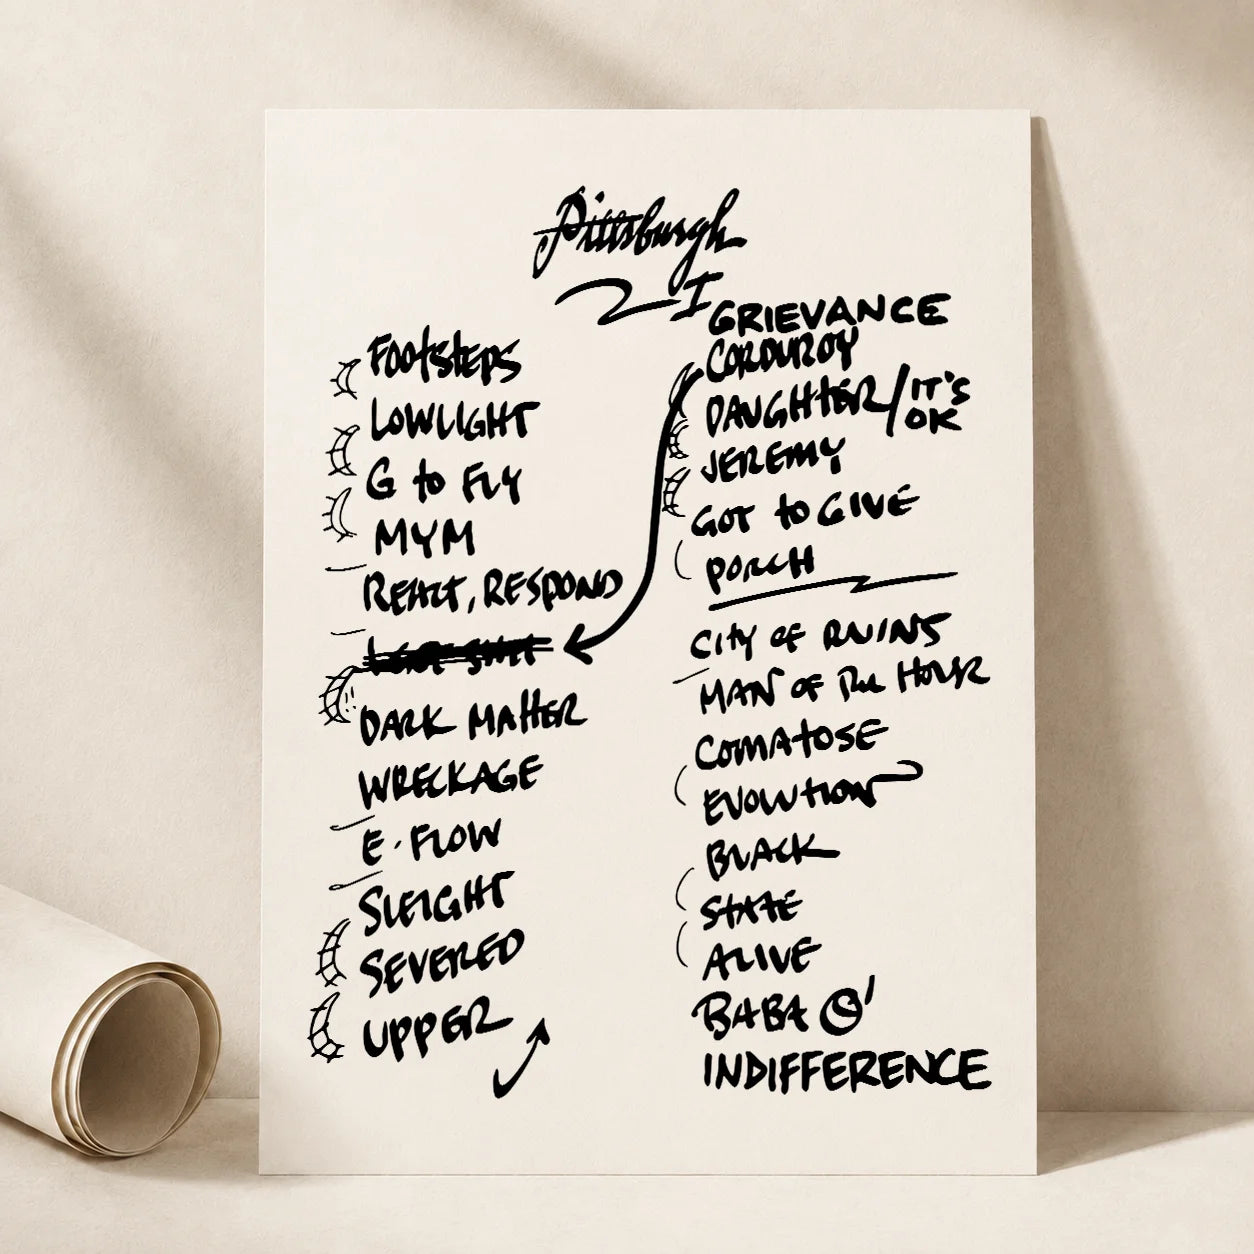 Pittsburgh
I
FOOTSTEPS
LOWLIGHT
G to FLY
MYM
REACT, RESPOND
DARK MATTER
WRECKAGE
E · FLOW
SLEIGHT
SEVERED
UPPER
GRIEVANCE
CORDUROY
DAUGHTER/IT'S OK
JEREMY
GOT to GIVE
PORCH
CITY OF RUINS
MAN OF The HOUR
COMATOSE
EVOLUTION
BLACK
STATE
ALIVE
BABA O'
INDIFFERENCE